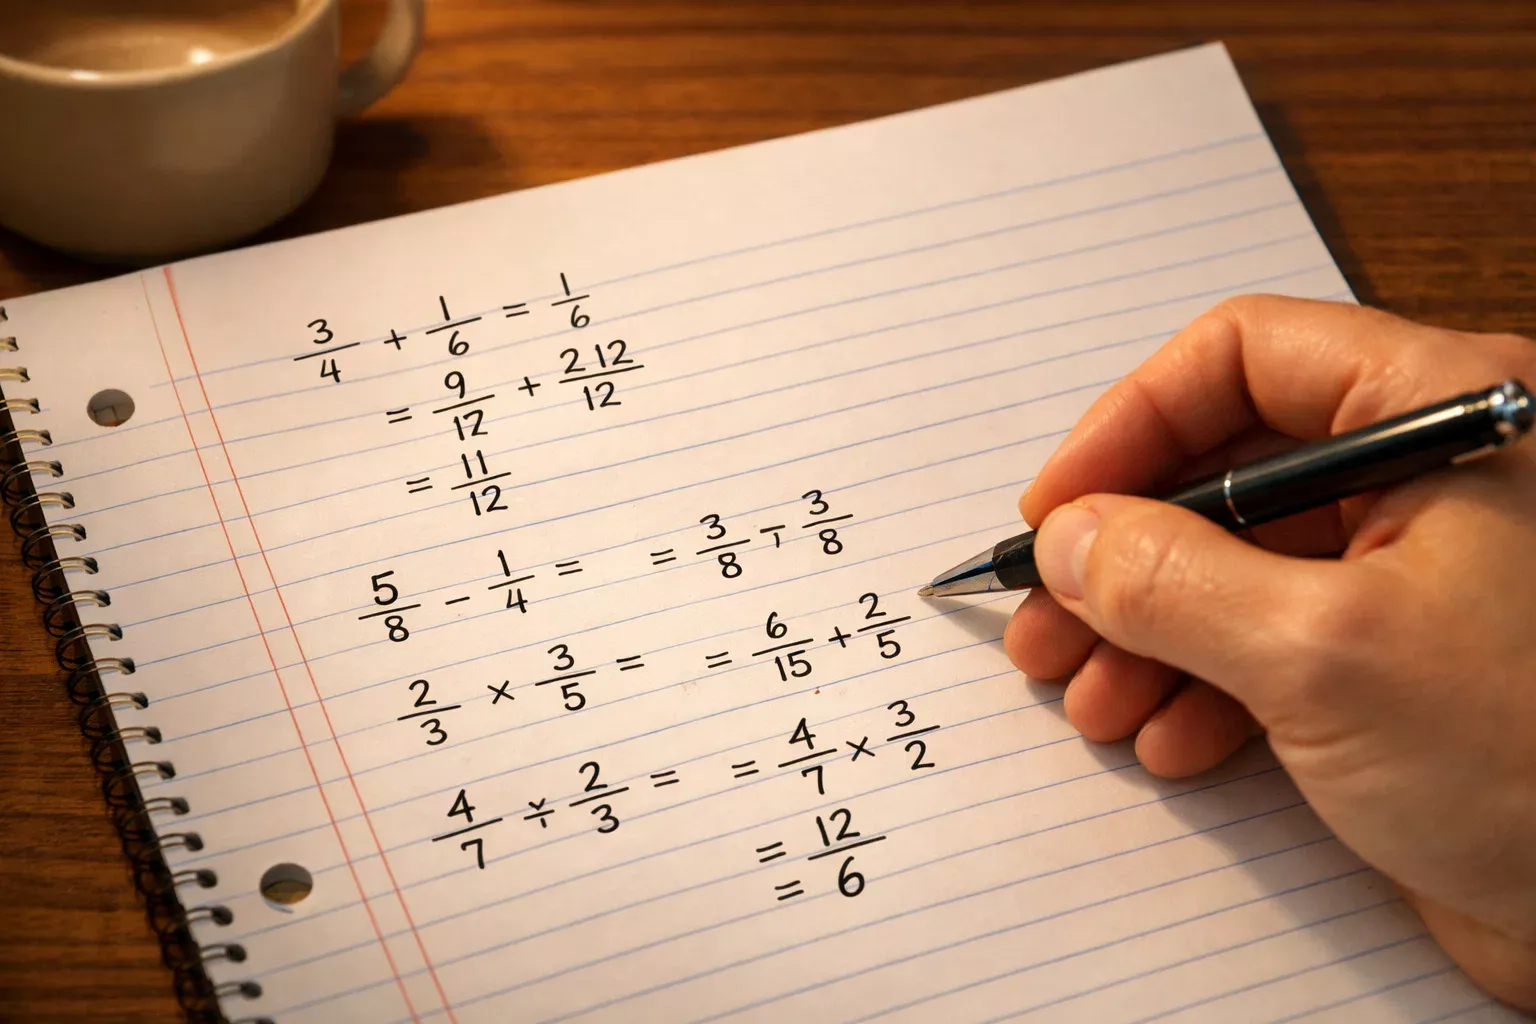 3/4 + 1/6 = 1/6
= 9/12 + 212/12
= 11/12
5/8 − 1/4 = = 3/8 ÷ 3/8
2/3 × 3/5 = = 6/15 + 2/5
4/7 ÷ 2/3 = = 4/7 × 3/2
= 12/6
= 6